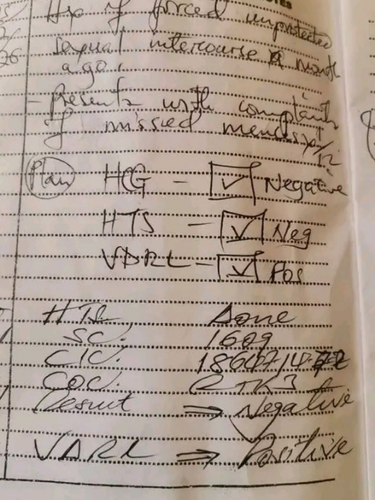 of forced unprotected
sexual intercourse a month
ago.
- Presents with complaints
of missed menses
Plan HCG - ☑ Negative
HTS - ☑ Neg
VDRL - ☑ Pos
HTS Done
SC. 1609
CTC.
COC. RTK3
Result ⇒ Negative
VDRL ⇒ Positive